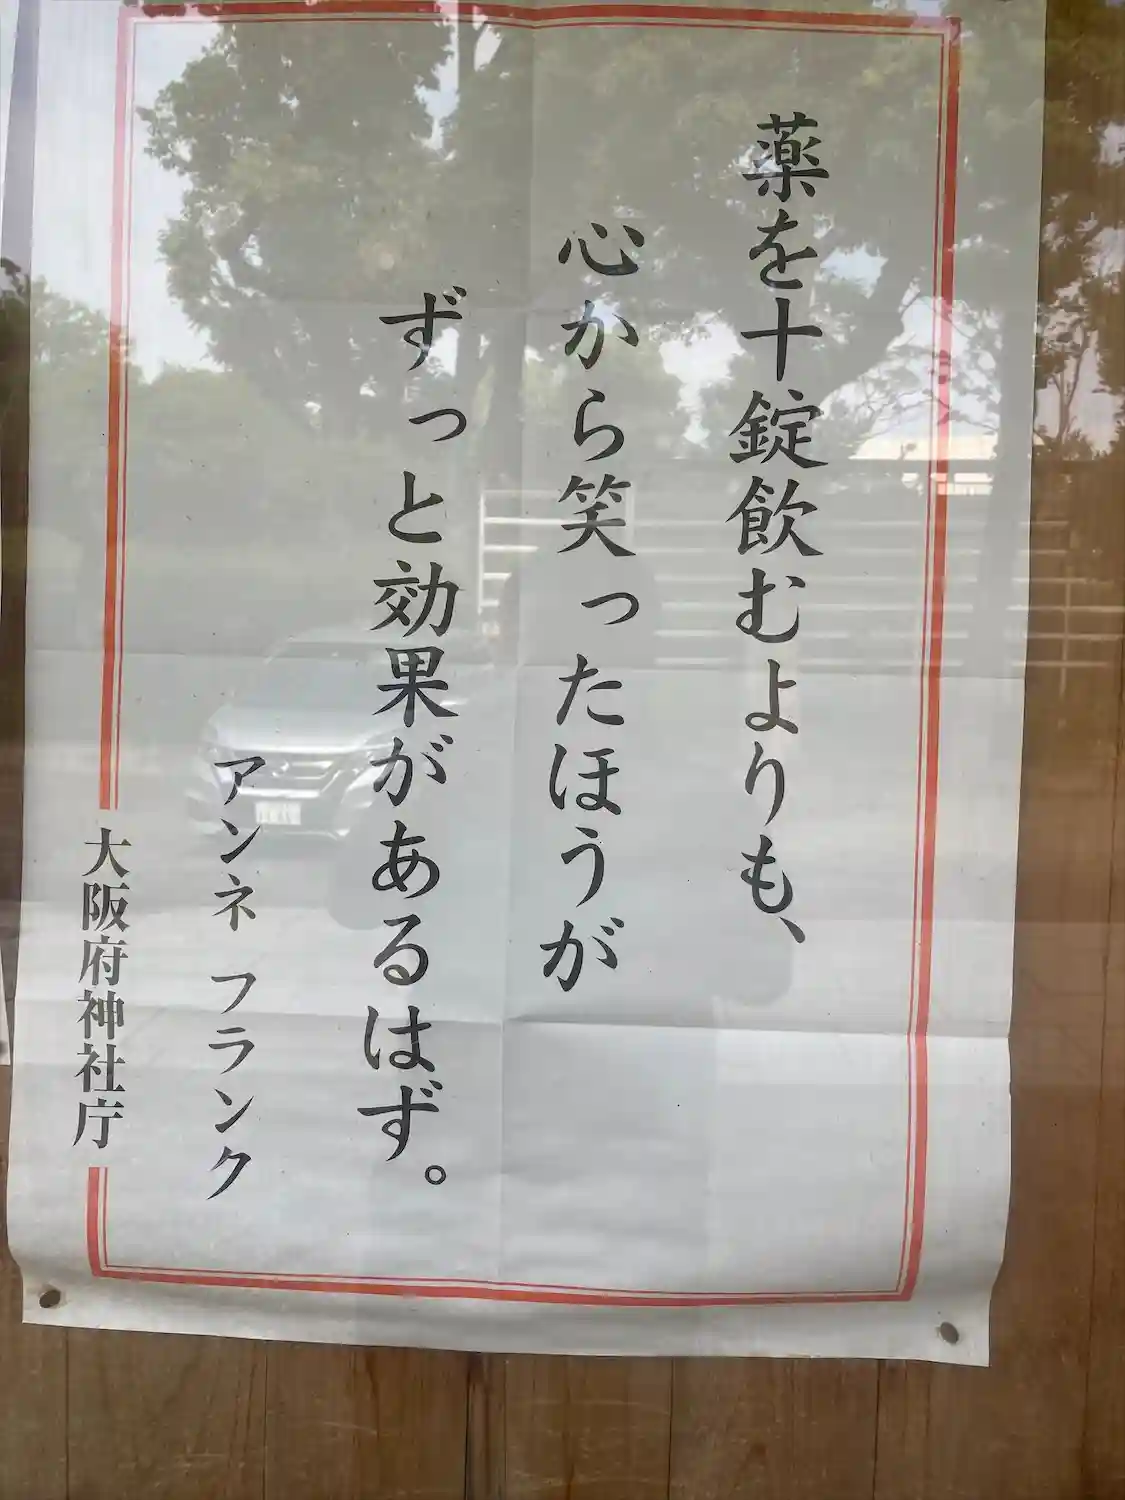 薬を十錠飲むよりも、
心から笑ったほうが
ずっと効果があるはず。
アンネ フランク
大阪府神社庁